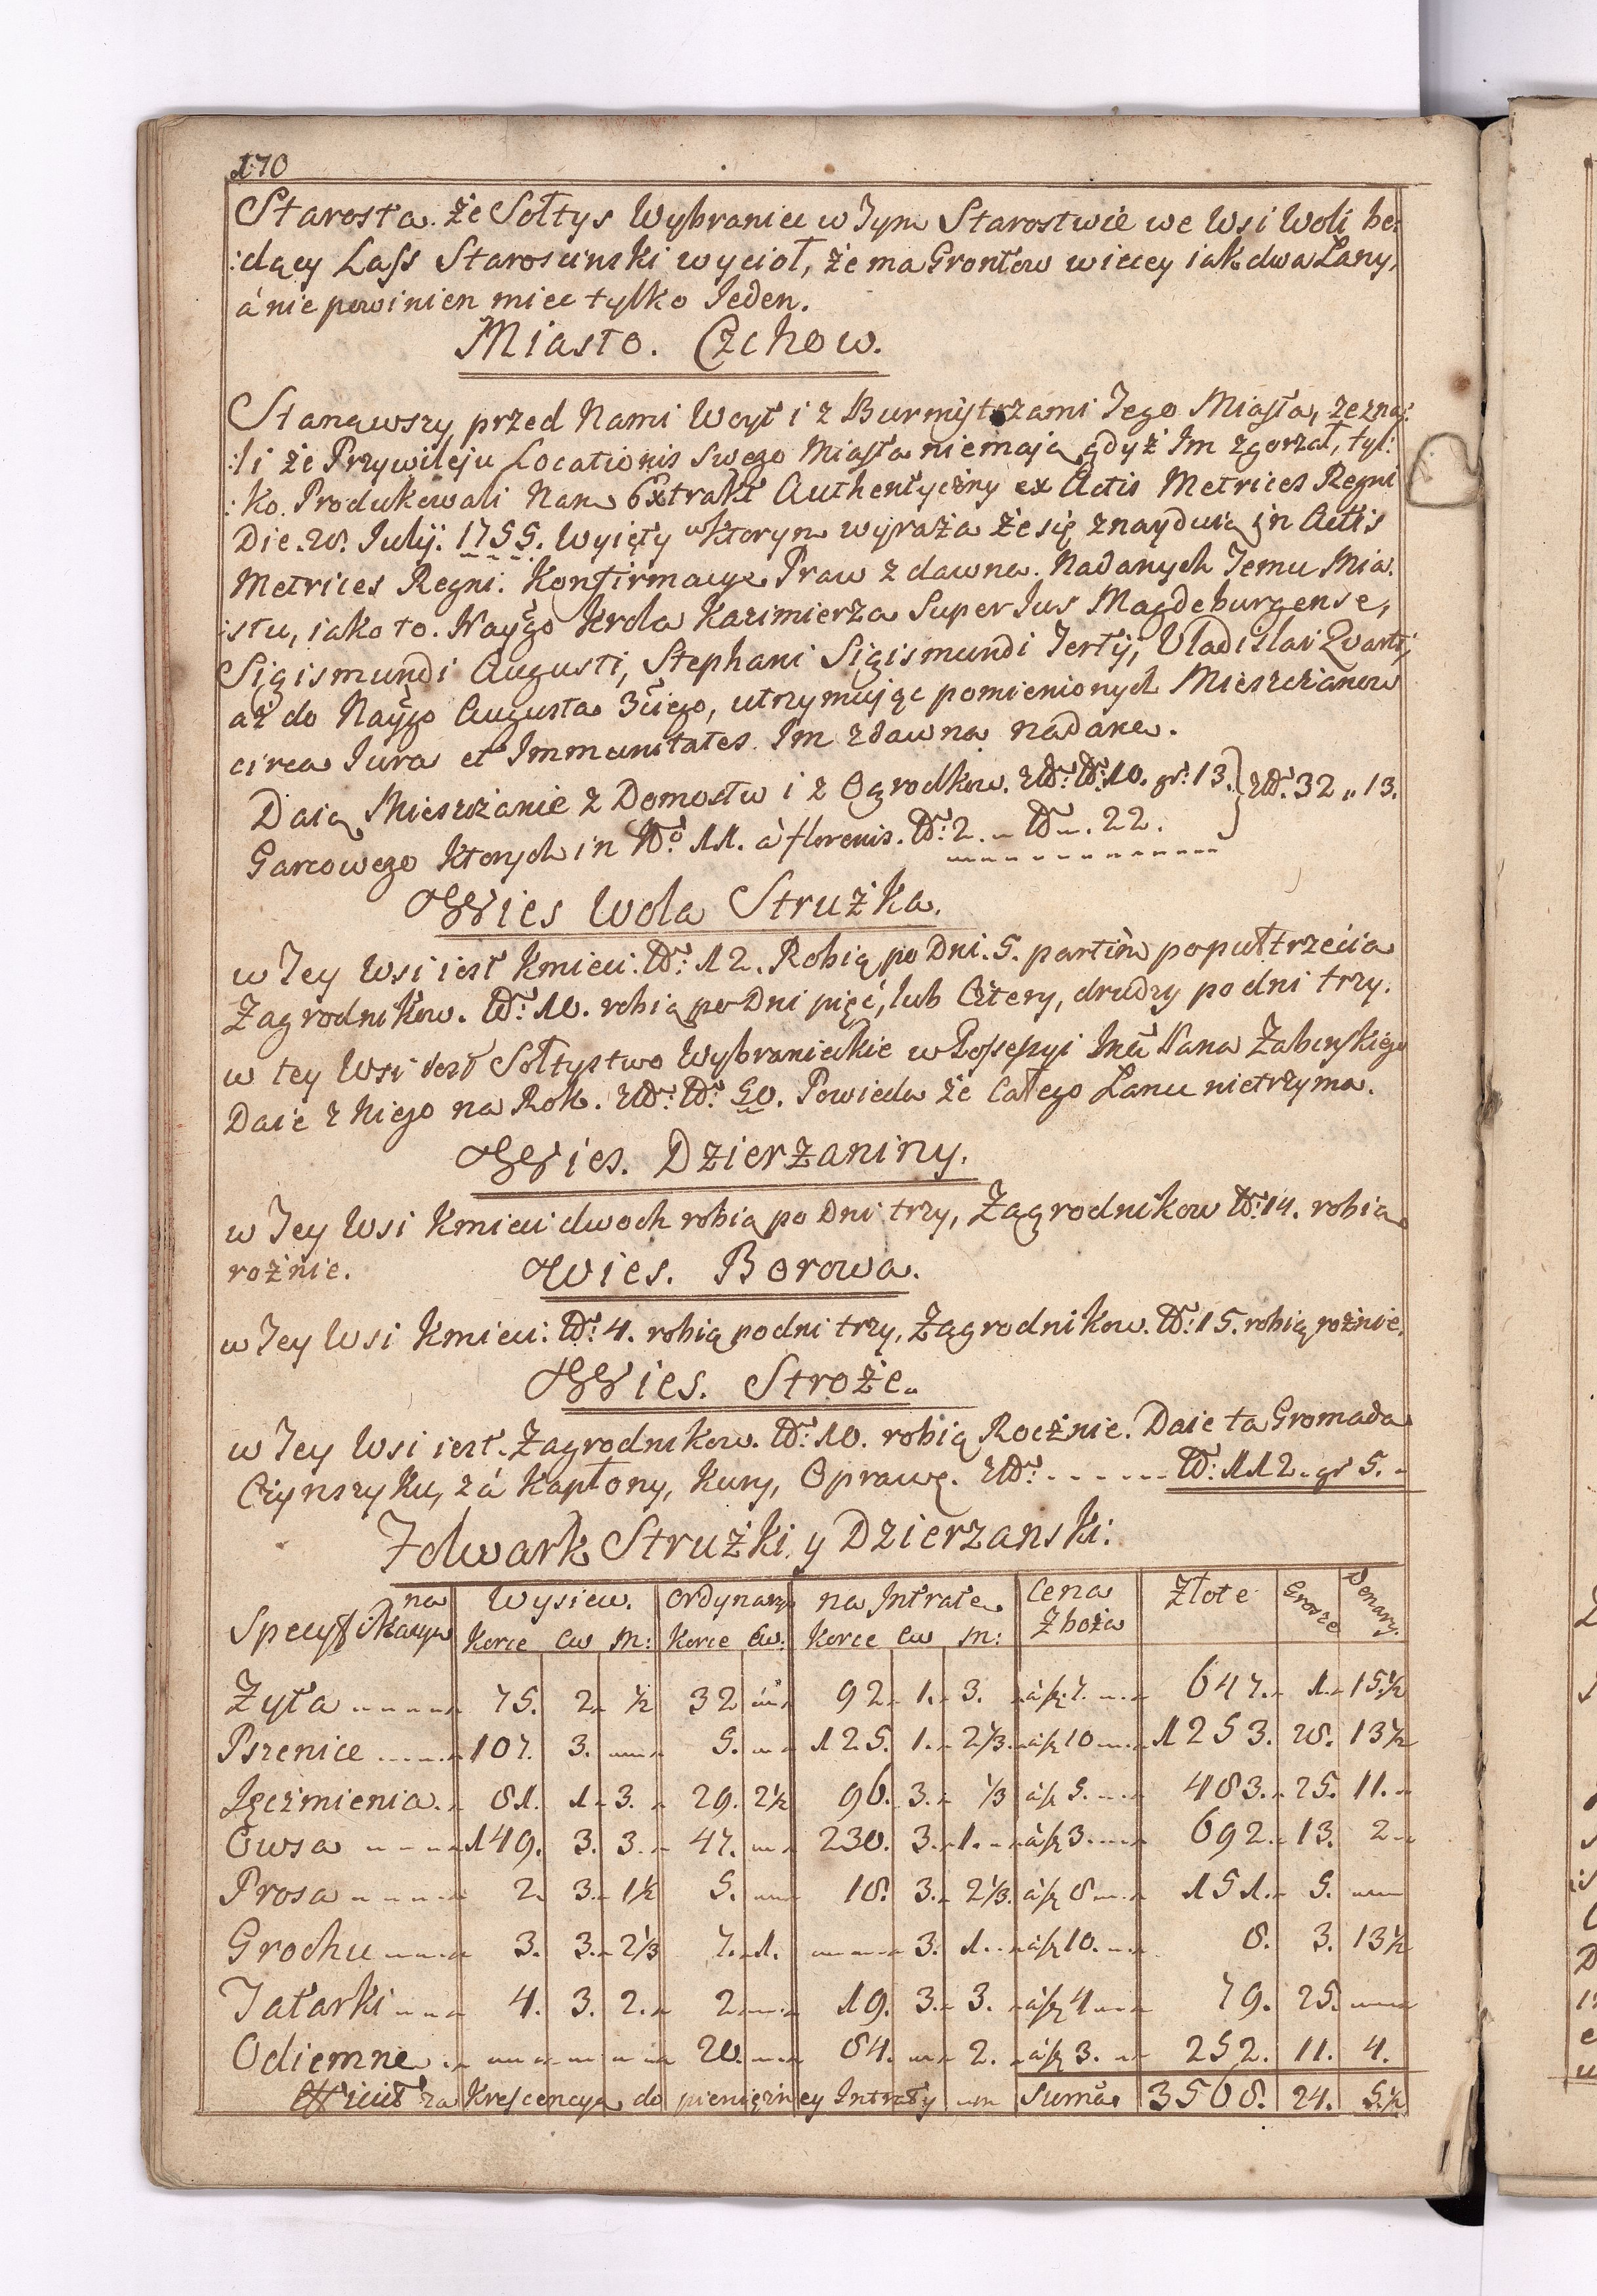 170
Starosta. że Sołtys Wybraniec w Tym Starostwie we Wsi Woli bę:
:dący Lass Starosciński wycioł, że ma Grontow więcey iak dwa Lany,
á nie powinien miec tylko Jeden.
Miasto. Czchow.
Stanąwszy przed Nami Woyt i z Burmystrzami Tego Miasta, zezna:
:li że Przywileju Locationis swego Miasta nie maią, gdyż Im zgorzał, tyl:
:ko. Produkowali Nam Extrakt Authentyczny ex Actis Metrices Regni
Die. 28. Julij. 1755. Wyięty w ktorym wyraża że się znayduią in Actis
Metrices Regni. Konfirmacye Praw z dawna. Nadanych Temu Mia:
:stu, iako to. Naygo Krola Kazimierza Super Ius Magdeburgense,
Sigismundi Augusti, Stephani Sigismundi Tertij, Vladislai Quarti,
aż do Naygo Augusta 3ciego, utrzymuiąc pomienionych Mieszczanow
circa Iura et Immunitates Im zdawna nadane.
Daią Mieszczanie z Domostw i z Ogrodkow. 10. gr. 13. 32 „ 13.
Garcowego ktorych in 11. à florenis. 2. 22.
Wies Wola Strużka.
w Tey Wsi iest Kmieci. 12. Robią po Dni. 5. partim poputtrzecia
Zagrodnikow. 10. robią po Dni pięć, lub Cztery, drudzy po dni trzy.
w tey Wsi iest Sołtystwo Wybranieckie w Possessyi Pana Żabinskiego
Daie z niego na Rok. 50. Powieda że całego Lanu nietrzyma.
Wies. Dzierżaniny.
w Tey Wsi Kmieci dwoch robią po Dni trzy, Zagrodnikow 14. robią
rożnie. Wies. Borowa.
w Tey Wsi Kmieci: 4. robią po dni trzy, Zagrodnikow. 15. robią rożnie.
Wies. Stroże.
w Tey Wsi iest. Zagrodnikow. 10. robią Rocznie. Daie ta Gromada
Czynszyku, zá Kapłony, Kury, Oprawę. 112. gr 5.
Folwark Strużki y Dzierzanski:
Specyfikacya na Wysiew. Ordynaryą na Intratę Cena Zboża Złote Grosze Denary.
Korce Cw M: Korce Cw: Korce Cw M:
Żyta 75. 2. ½ 32 92. 1. 3. à 7. 647. 1. 15½
Pszenice 107. 3. 5. 125. 1. 2⅓. à 10 1253. 28. 13½
Jęczmienia. 81. 1. 3. 29. 2½ 96. 3. ⅓ à 5. 483. 25. 11.
Owsa 149. 3. 3. 47. 230. 3. 1. à 3. 692. 13. 2
Prosa 2. 3. 1½ 5. 18. 3. 2⅓. à 8 151. 5.
Grochu 3. 3. 2⅓ 7. 1. 3. 1. à 10. 8. 3. 13½
Tatarki 4. 3. 2. 2 19. 3. 3. à 4 79. 25.
Odiemne 20. 84. 2. à 3. 252. 11. 4.
Efficit za Krescencyą do pienięzney Intraty Suma 3568. 24. 5½